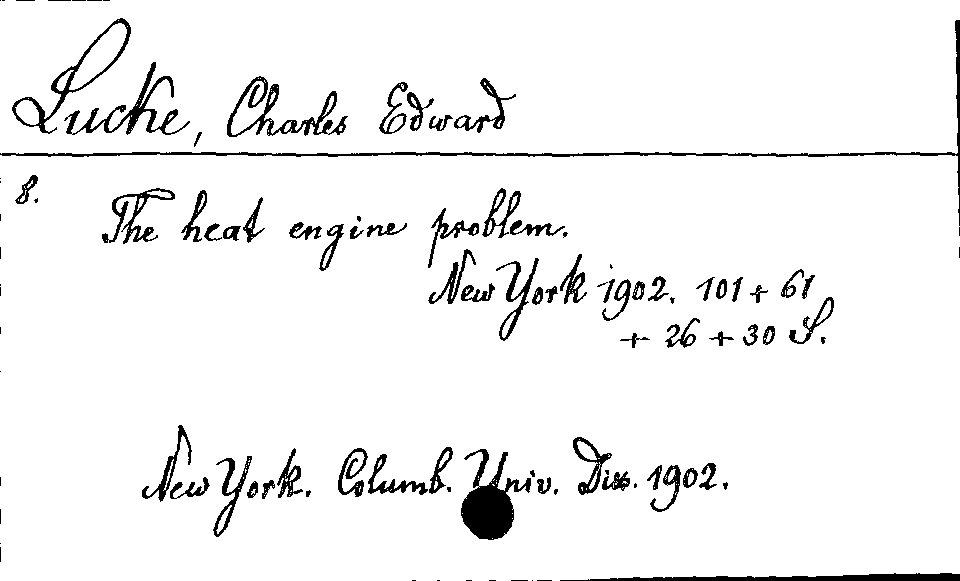 Lucke, Charles Edward
8.
The heat engine problem.
New York 1902. 101 + 61
+ 26 + 30 S.
New York. Columb. Univ. Diss. 1902.